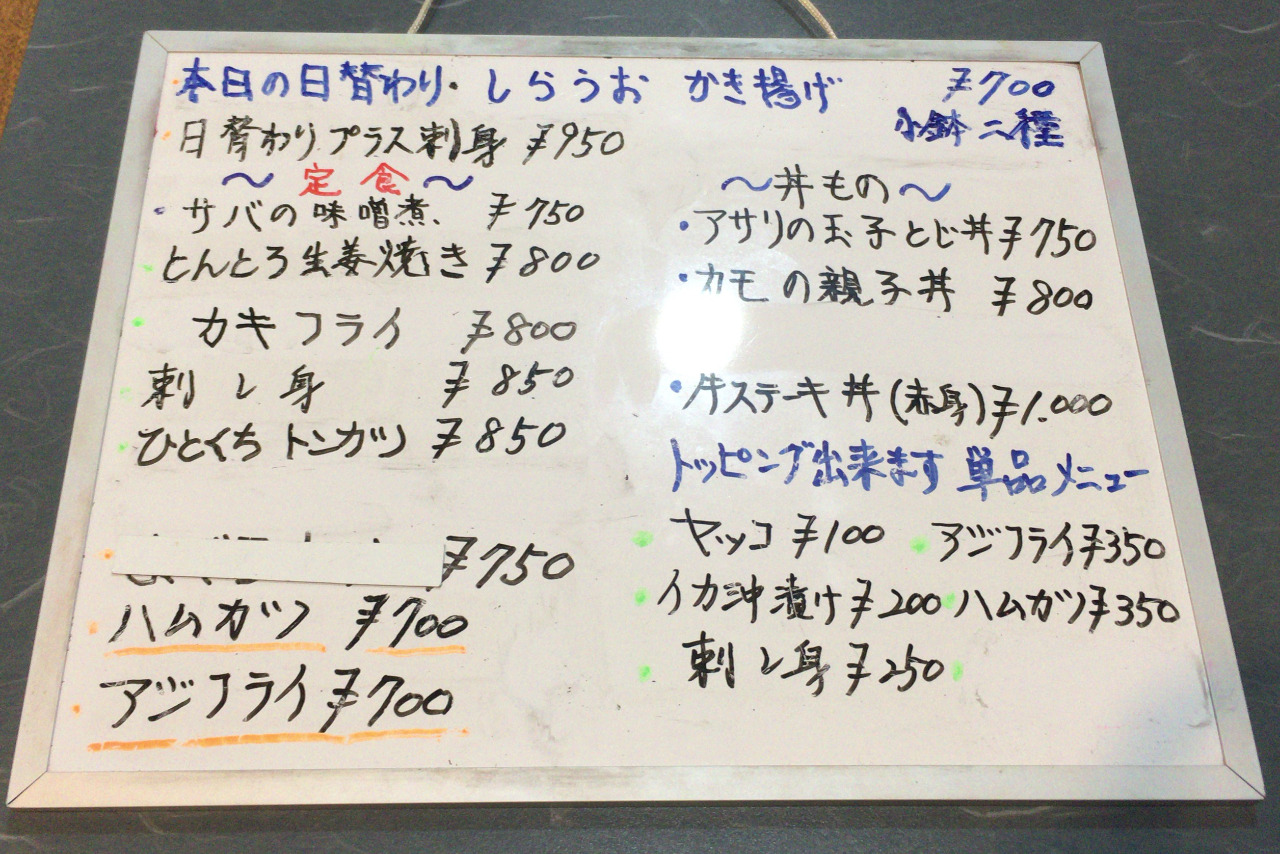 本日の日替わり・しらうお かき揚げ ¥700
小鉢二種
日替わりプラス刺身 ¥950
〜定食〜
・サバの味噌煮 ¥750
とんとろ生姜焼き ¥800
カキフライ ¥800
刺し身 ¥850
ひとくちトンカツ ¥850
¥750
ハムカツ ¥700
アジフライ ¥700
〜丼もの〜
・アサリの玉子とじ丼 ¥750
・カモの親子丼 ¥800
・牛ステーキ丼(赤身) ¥1.000
トッピング出来ます 単品メニュー
ヤッコ ¥100 アジフライ ¥350
イカ沖漬け ¥200 ハムカツ ¥350
刺し身 ¥250